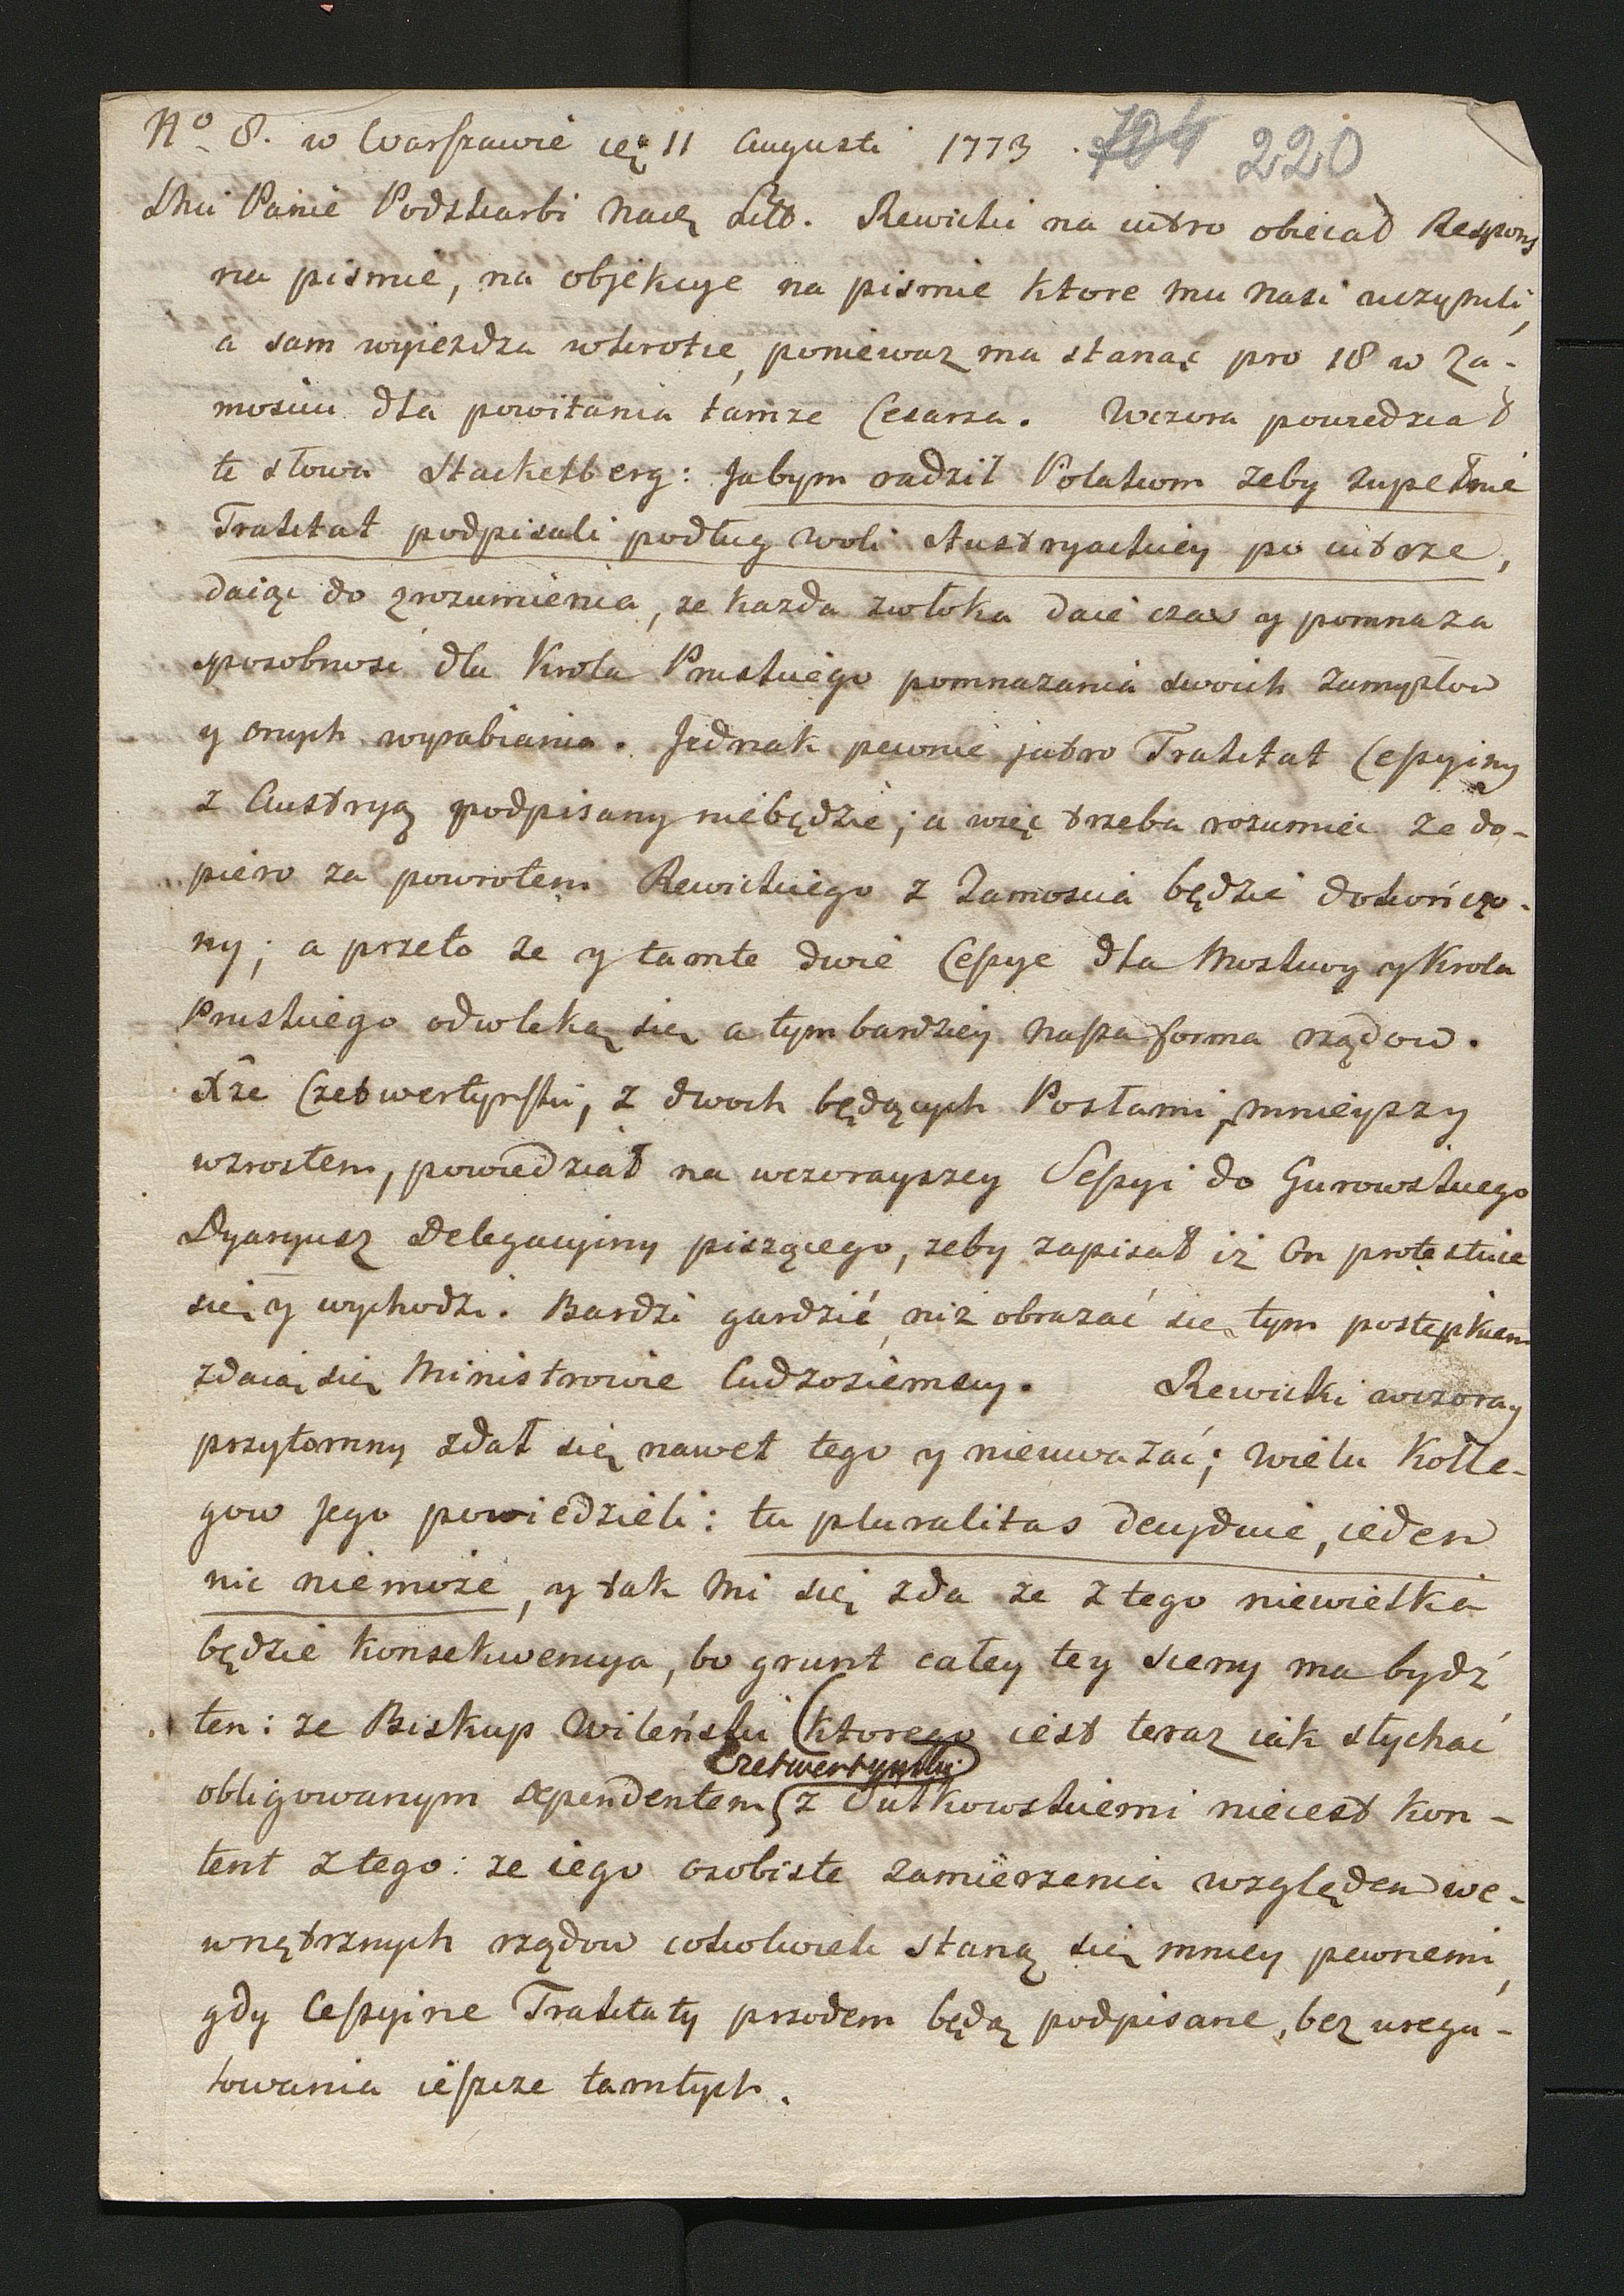 No 8. w Warszawie ię 11 Augusti 1773. 704 220
Mci Panie Podskarbi Nadw Litt. Rewicki na iutro obiecał Respons
na pismie, na objekcye na pismie ktore mu nasi uczynili,
a sam wyieżdza wkrotce, poniewaz ma stanąć pro 18 w Za-
mosciu dla powitania tamże Cesarza. Wczora powiedział
te słowa Stackelberg: Jabym radził Polakom żeby zupełnie
Traktat podpisali podług woli Austryackiey po iutrze,
daiąc do zrozumienia, ze każda zwłoka daie czas y pomnaza
sposobnosć dla Krola Pruskiego pomnazania swoich zamysłow
y onych wyrabiania. Jednak pewnie jutro Traktat Cessyiny
z Austryą podpisany niebędzie; a więc trzeba rozumieć ze do-
piero za powrotem Rewickiego z Zamoscia będzie dokończo-
ny; a przeto ze y tamte dwie Cessye dla Moskwy y Krola
Pruskiego odwleką się, a tym bardziey nasza forma rządow.
Xże Czetwertyński, z dwoch będących Posłami, mnieyszy
wzrostem, powiedział na wczorayszey Sessyi do Gurowskiego
Dyaryusz Delegacyiny piszącego, zeby zapisał iż On protestuie
się y wychodzi. Bardzi gardzić, niż obrazać się tym postępkiem
zdaią się Ministrowie Cudzoziemscy. Rewicki wczoray
przytomny zdał się nawet tego y nieuważać; wielu Kolle-
gow Jego powiedzieli: tu pluralitas decyduie, ieden
nic niemoże, y tak mi się zda ze z tego niewielka
będzie konsekwencya, bo grunt całey tey sceny ma bydź
ten: ze Biskup Wileński (ktorego iest teraz iak słychać
Czetwertyński)
obligowanym dependentem z Sułkowskiemi nieiest kon-
tent z tego: ze iego osobiste zamierzenia względem we-
wnętrznych rządow cokolwiek staną się mniey pewnemi,
gdy Cessyine Traktaty przodem będą podpisane, bez uregu-
lowania ieszcze tamtych.